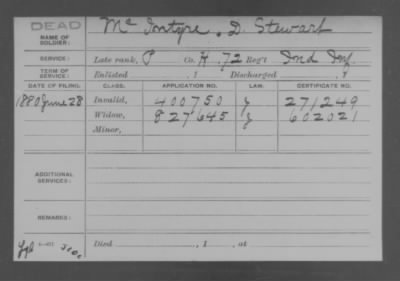 DEAD
NAME OF SOLDIER: Mc Intyre, D. Stewart
SERVICE: Late rank, P Co. H, 72 Reg't Ind Inf.
TERM OF SERVICE: Enlisted , 1 Discharged , 1
DATE OF FILING. CLASS. APPLICATION NO. LAW. CERTIFICATE NO.
1880 June 28 Invalid, 400750 271249
Widow, 827645 602021
Minor,
ADDITIONAL SERVICES:
REMARKS:
Died , 1 , at